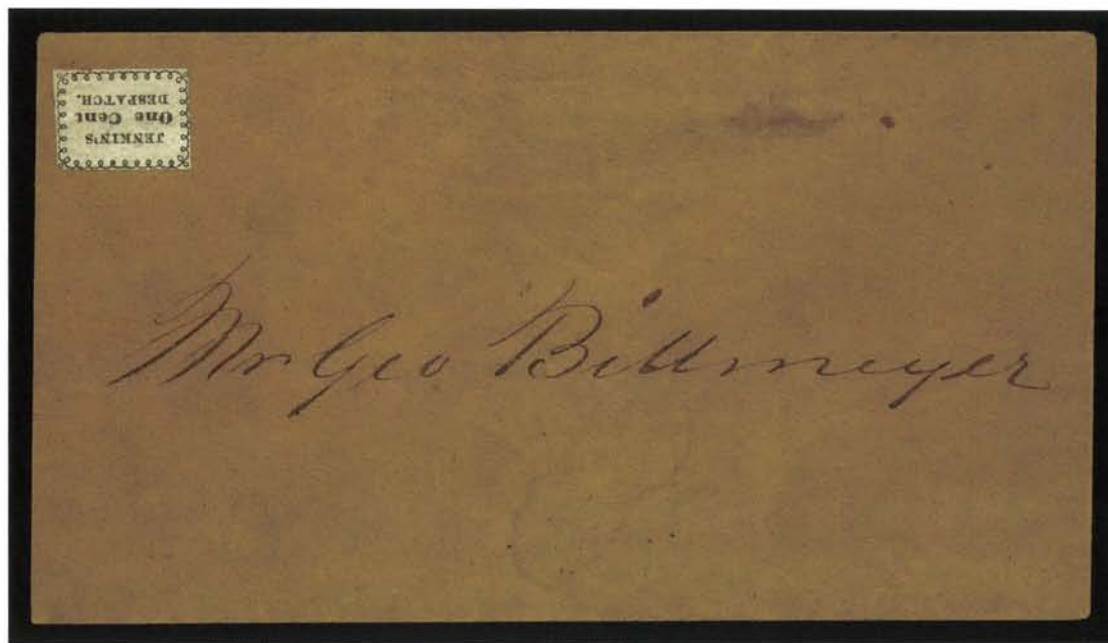 JENKIN'S
One Cent
DESPATCH.
Mr Geo Billmeyer